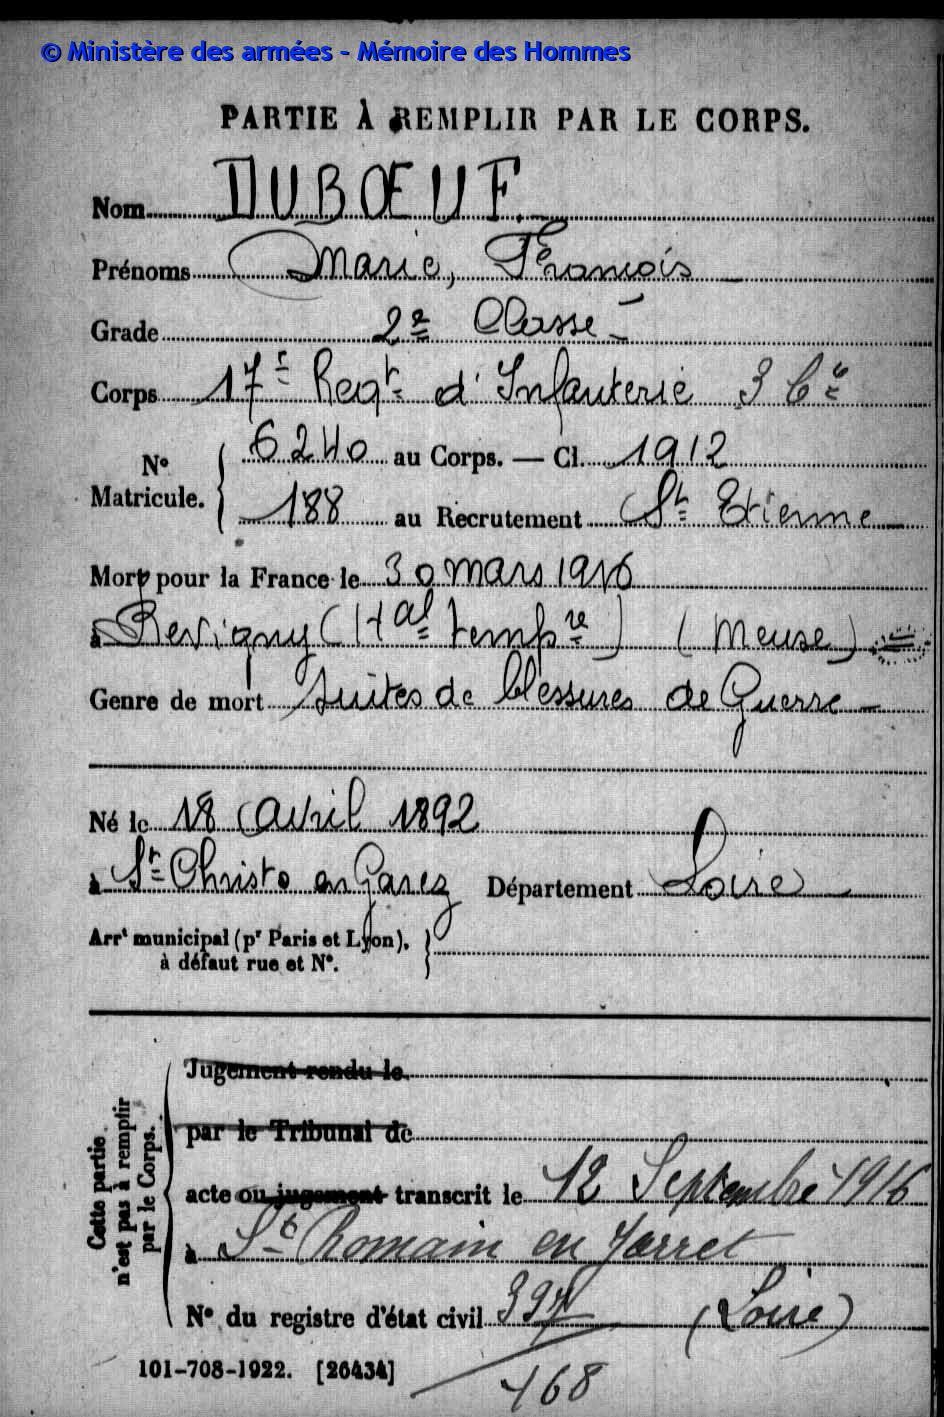 © Ministère des armées - Mémoire des Hommes
PARTIE À REMPLIR PAR LE CORPS.
Nom DUBŒUF.
Prénoms Marie, François
Grade 2e Classe
Corps 17e Regt d'Infanterie 3 Cie
No Matricule. { 6240 au Corps. — Cl. 1912
188 au Recrutement St Etienne
Mort pour la France le 30 mars 1916
à Revigny (Hal tempre) (Meuse)
Genre de mort Suites de blessures de Guerre
Né le 18 Avril 1892
à St Christo en Jarez Département Loire
Arrt municipal (pr Paris et Lyon),
à défaut rue et No.
Cette partie
n'est pas à remplir
par le Corps.
Jugement rendu le
par le Tribunal de
acte ou jugement transcrit le 12 Septembre 1916
à St Romain en Jarret
No du registre d'état civil (Loire)
101-708-1922. [26434]
168